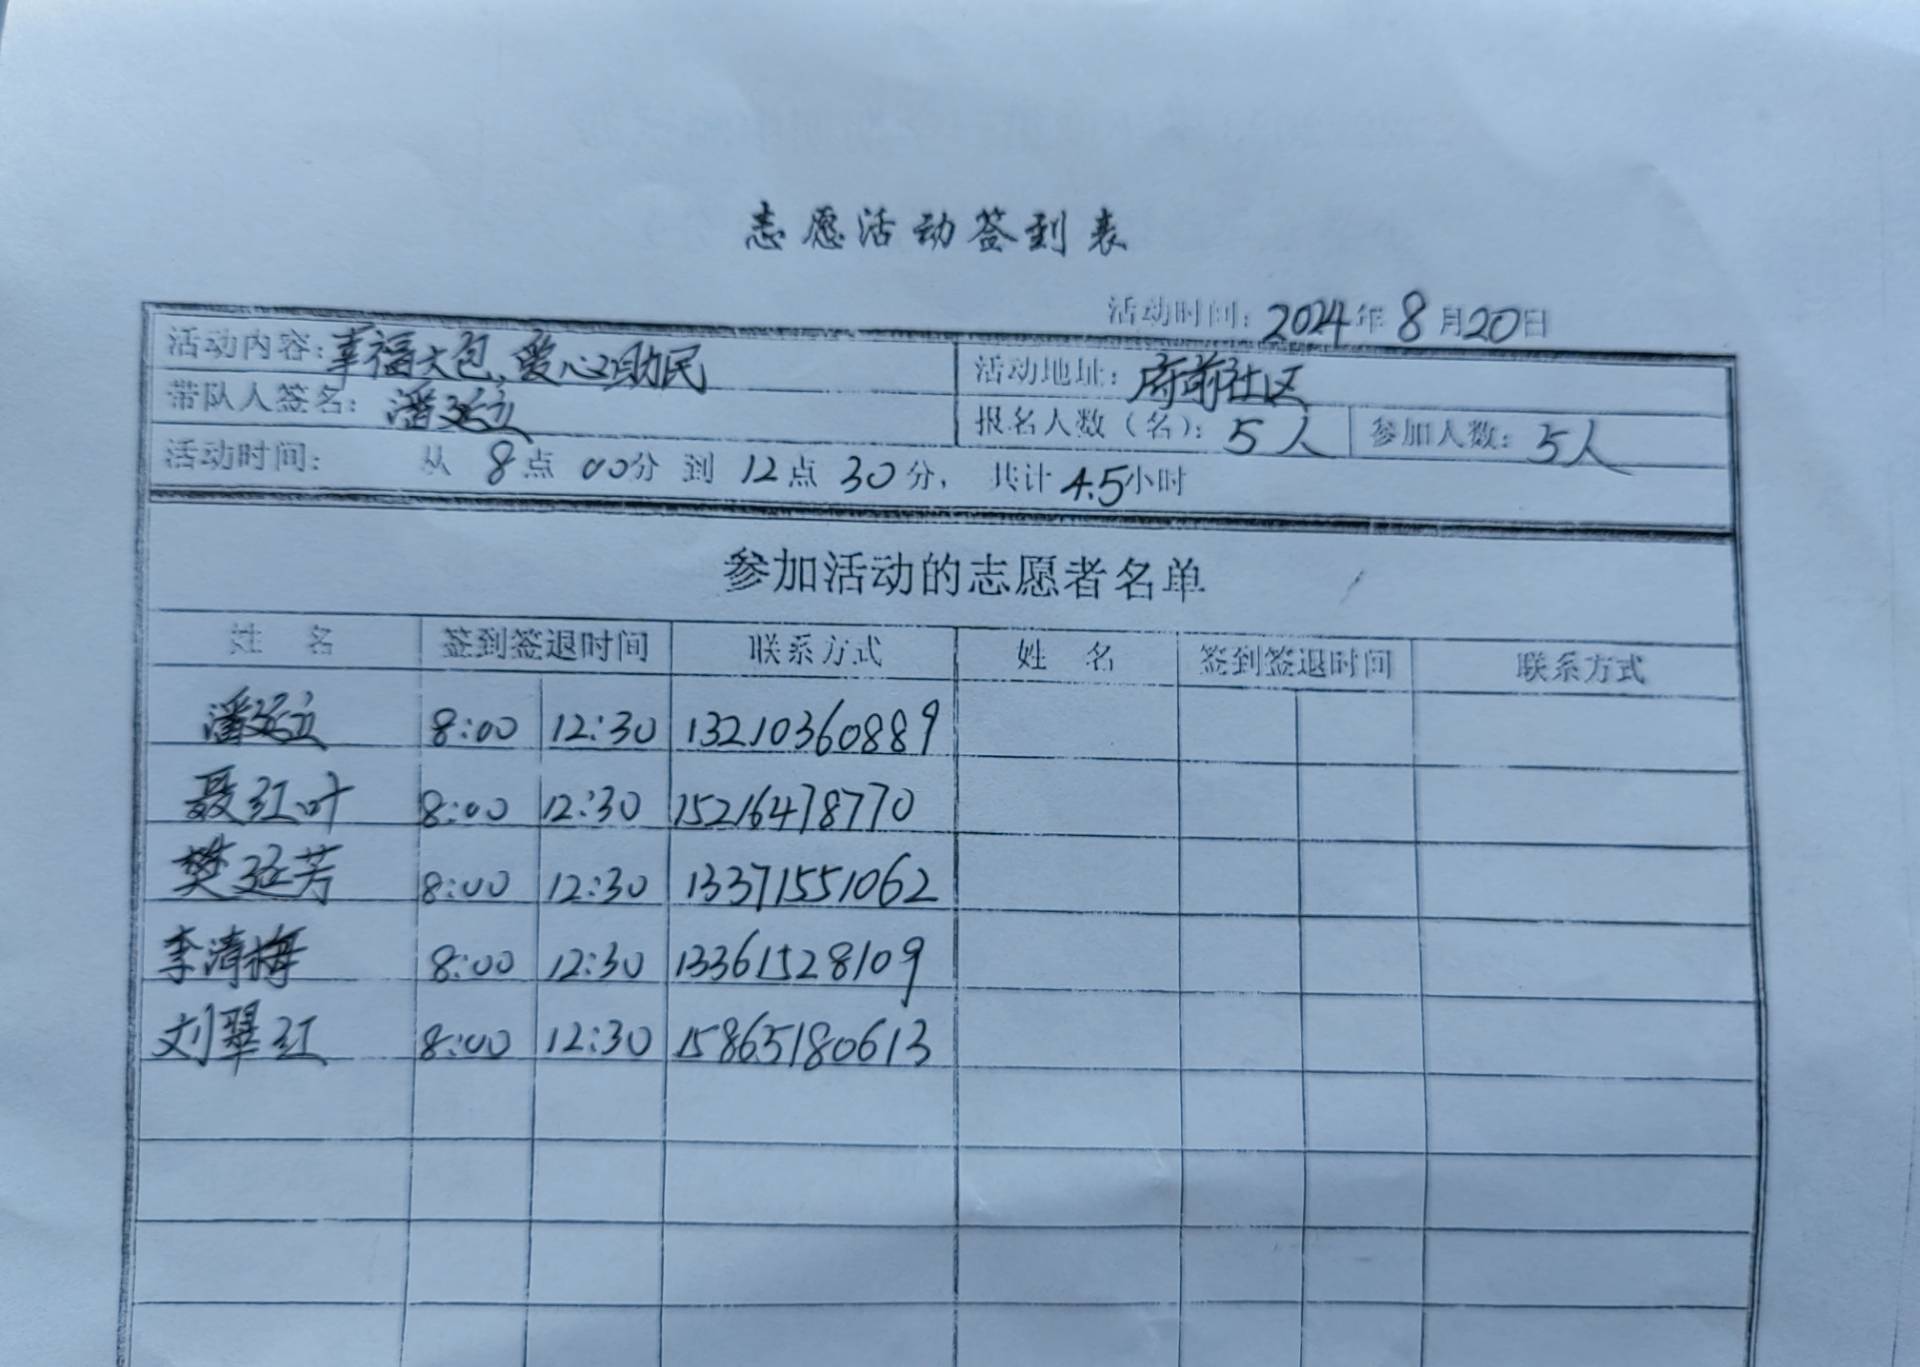 志愿活动签到表
活动时间：2024年8月20日
活动内容：幸福大包、爱心助民 活动地址：府前社区
带队人签名：潘延立 报名人数（名）：5人 参加人数：5人
活动时间： 从 8点 00分 到 12点 30分， 共计 4.5小时
参加活动的志愿者名单
姓 名 签到签退时间 联系方式 姓 名 签到签退时间 联系方式
潘延立 8:00 12:30 13210360889
聂红叶 8:00 12:30 15216478770
樊延芳 8:00 12:30 13371551062
李清梅 8:00 12:30 13361528109
刘翠红 8:00 12:30 15865180613